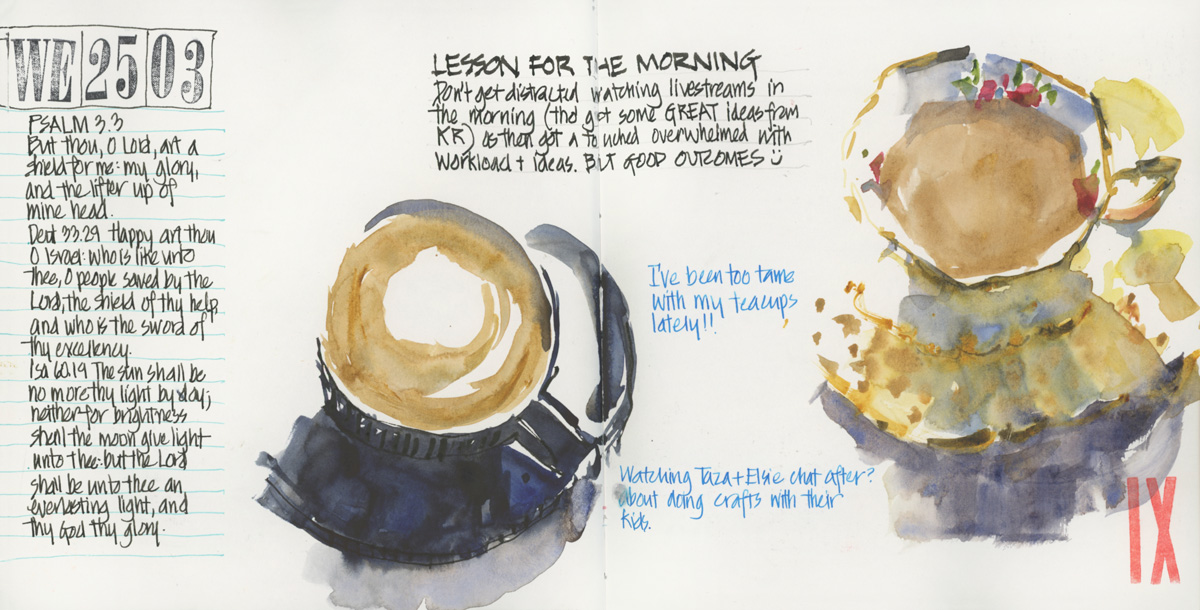 WE 25 03
PSALM 3.3
But thou, O Lord, art a
shield for me: my glory,
and the lifter up of
mine head.
Deut 33.29 Happy art thou
O Israel: who is like unto
thee, O people saved by the
Lord, the shield of thy help
and who is the sword of
thy excellency.
Isa 60.19 The sun shall be
no more thy light by day;
neither for brightness
shall the moon give light
unto thee: but the Lord
shall be unto thee an
everlasting light, and
thy God thy glory.
LESSON FOR THE MORNING
Don't get distracted watching livestreams in
the morning (tho got some GREAT ideas from
KR) as then got a touched overwhelmed with
workload + ideas. BUT GOOD OUTCOMES
I've been too tame
with my teacups
lately!!
Watching Taza + Elsie chat after?
about doing crafts with their
kids.
IX